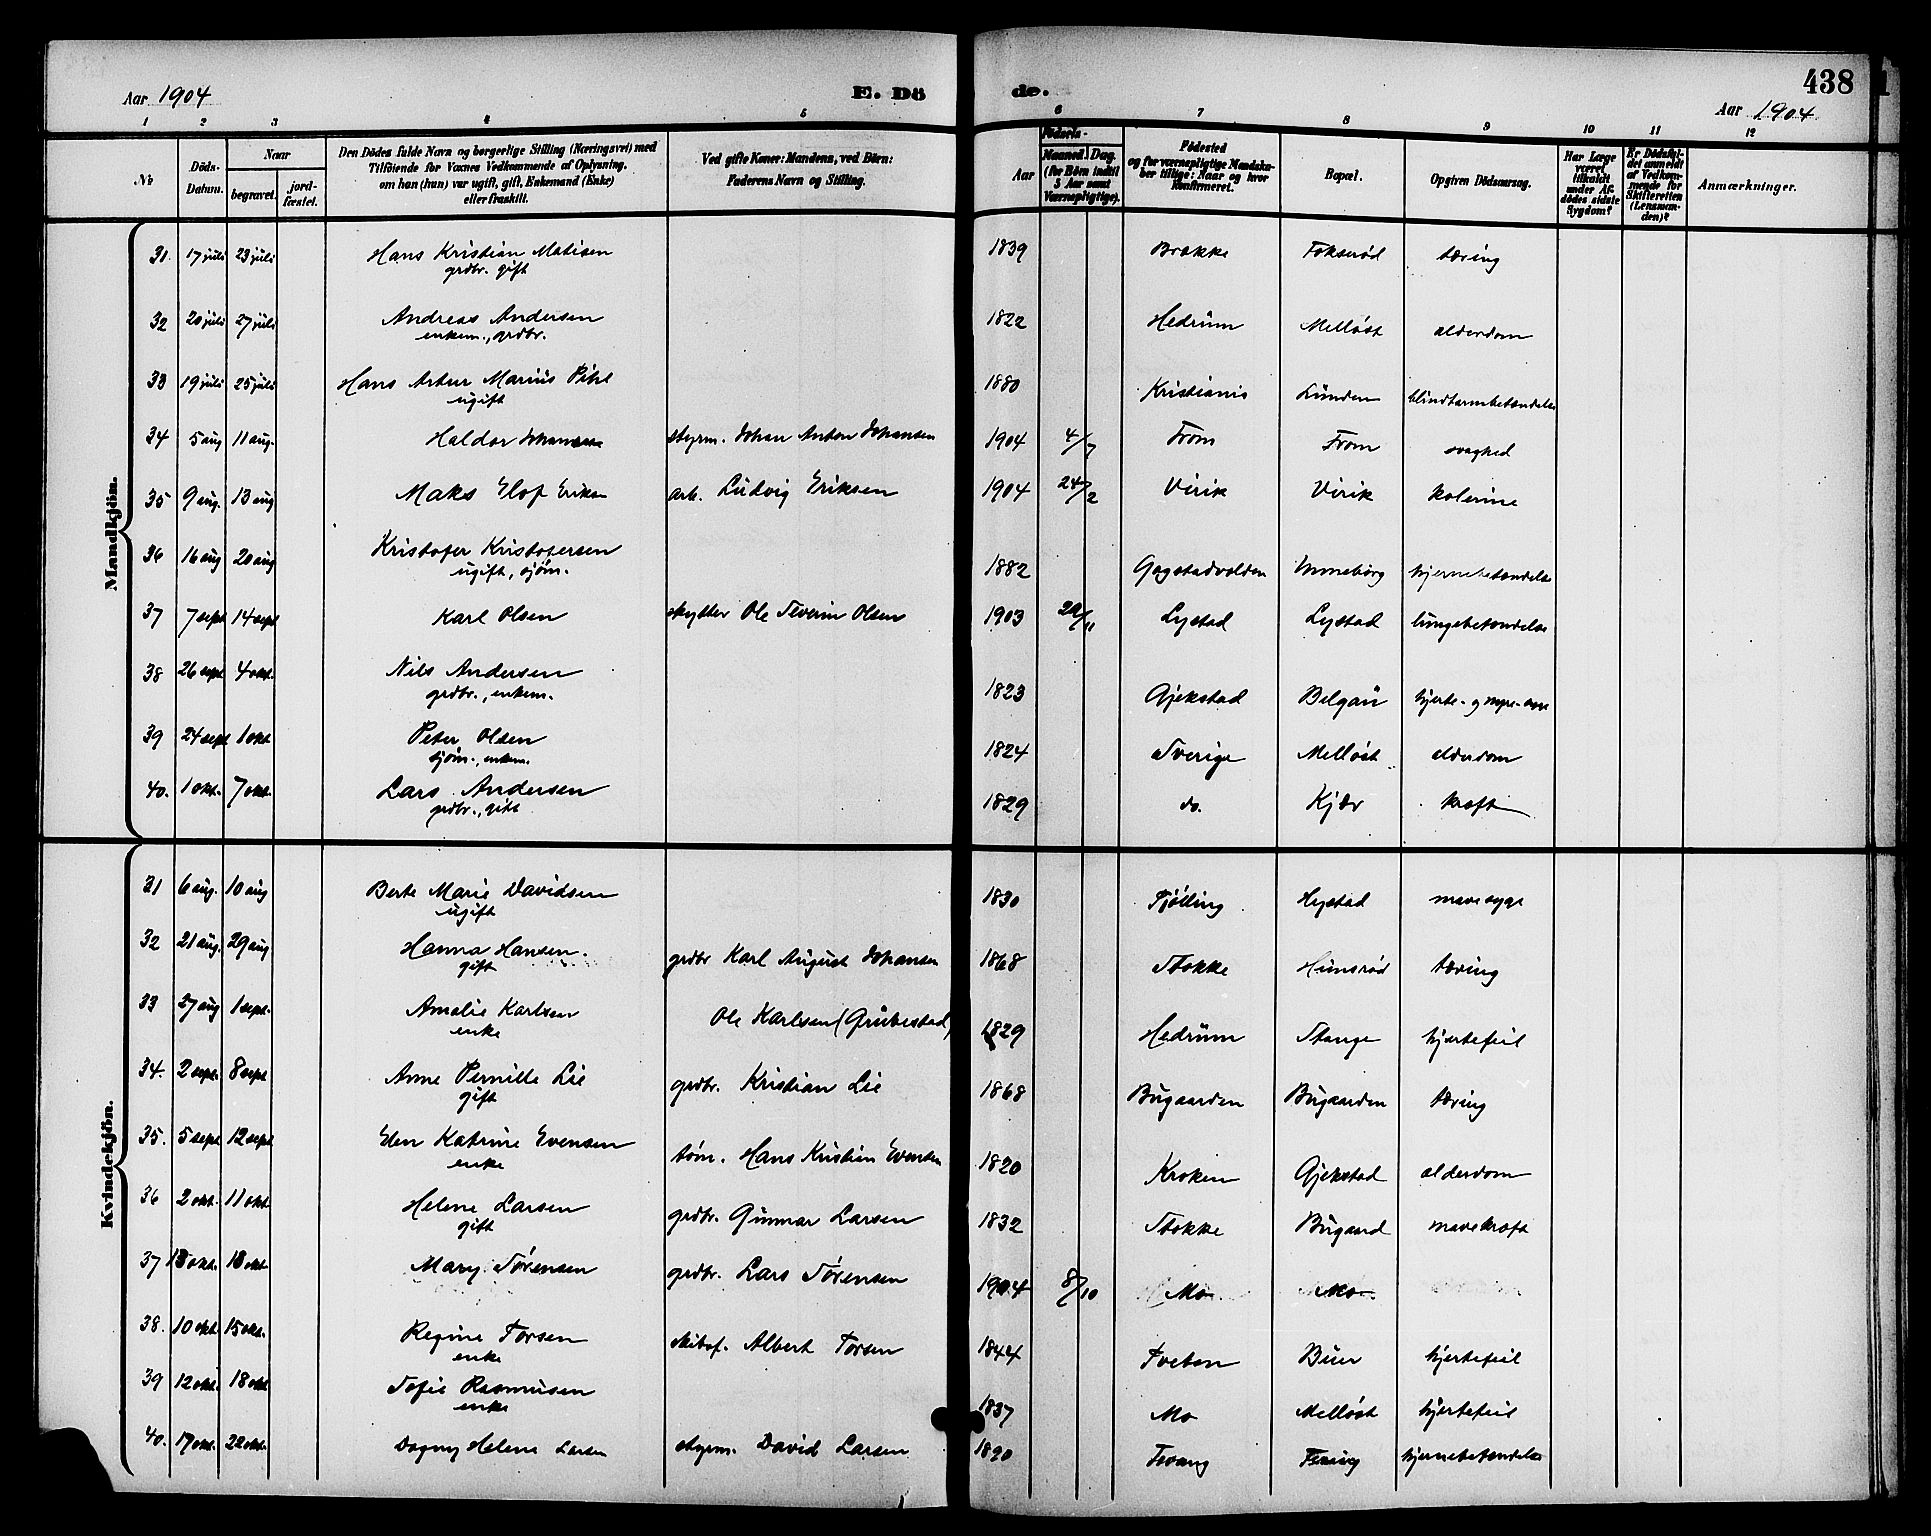 438
Aar 1904
E. Dö
de.
Aar 1904
1 2 3 4 5 6 7 8 9 10 11 12
No
Döds-Datum.
Naar
begravet.
jord-fæstet.
Den Dödes fulde Navn og borgerlige Stilling (Næringsvei) med
Tilföiende for Voxnes Vedkommende af Oplysning,
om han (hun) var ugift, gift, Enkemand (Enke)
eller fraskilt.
Ved gifte Koner: Mandens, ved Börn:
Faderens Navn og Stilling.
Födsels-
Aar
Maaned. Dag.
(for Börn indtil
5 Aar samt
Værnepligtige).
Födested
og for værnepligtige Mandska-
ber tillige: Naar og hvor
Konfirmeret.
Bopæl.
Opgiven Dödsaarsag.
Har Læge
været
tilkaldt
under Af-
dödes sidste
Sygdom?
Er Dödsfal-
det anmeldt
af Vedkom-
mende for
Skifteretten
(Lensman-
den)?
Anmærkninger.
Mandkjön.
31. 17 juli 23 juli Hans Kristian Matisen 1839 Brække Fokserød tæring
grdbr. gift
32 20 juli 27 juli Andreas Andersen 1822 Hedrum Melløst alderdom
enkem., grdbr.
33 19 juli 25 juli Hans Artur Marius Pihl 1880 Kristiania Lunden blindtarmbetændelse
ugift
34 5 aug 11 aug. Haldor Johansen styrm. Johan Anton Johansen 1904 4/7 From From svaghed
35 9 aug. 13 aug Maks Elof Eriksen arb. Ludvig Eriksen 1904 24/2 Virik Virik kolerine
36 16 aug 20 aug Kristofer Kristofersen 1882 Gogstadvolden Unneberg hjernebetændelse
ugift, sjøm.
37 7 sept 14 sept Karl Olsen skytter Ole Severin Olsen 1903 29/11 Lystad Lystad lungebetændelse
38 26 sept 4 okt. Nils Andersen 1823 Gjekstad Belgau hjerte- og nyre-
grdbr., enkem.
39 24 sept 1 okt Peter Olsen 1824 Sverige Melløst alderdom
sjøm., enkem.
40. 1 okt. 7 okt. Lars Andersen 1829 do. Kjær kræft
grdbr., gift
Kvindekjön.
31 6 aug. 10 aug Berte Marie Davidsen 1830 Tjølling Hystad mavesyge
ugift
32 21 aug. 29 aug Hanna Hansen. grdbr Karl August Johansen 1868 Stokke Hunsrød tæring
gift
33 27 aug 1 sept. Amalie Karlsen Ole Karlsen (Grubestad) 1829 Hedrum Stange hjertefeil
enke
34. 2 sept. 8 sept Anne Pernille Lie grdbr. Kristian Lie 1868 Bugaarden Bugaarden tæring
gift
35. 5 sept 12 sept Elen Katrine Evensen tøm. Hans Kristian Evensen 1820 Kroken Gjekstad alderdom
enke
36 2 okt. 11 okt Helene Larsen grdbr. Gunnar Larsen 1832 Stokke Bugaard mavekræft
gift
37 13 okt. 18 okt Mary Sørensen grdbr. Lars Sørensen 1904 8/10 Mo Mo
38. 10 okt 15 okt. Regine Torsen skibsf. Albert Torsen 1844 Tveten Buer hjertefeil
enke
39 12 okt. 18 okt Sofie Rasmusen 1837 Mo Melløst hjertefeil
enke
40. 17 okt. 22 okt. Dagny Helene Larsen styrm. David Larsen 1890 Fevang hjernebetændelse